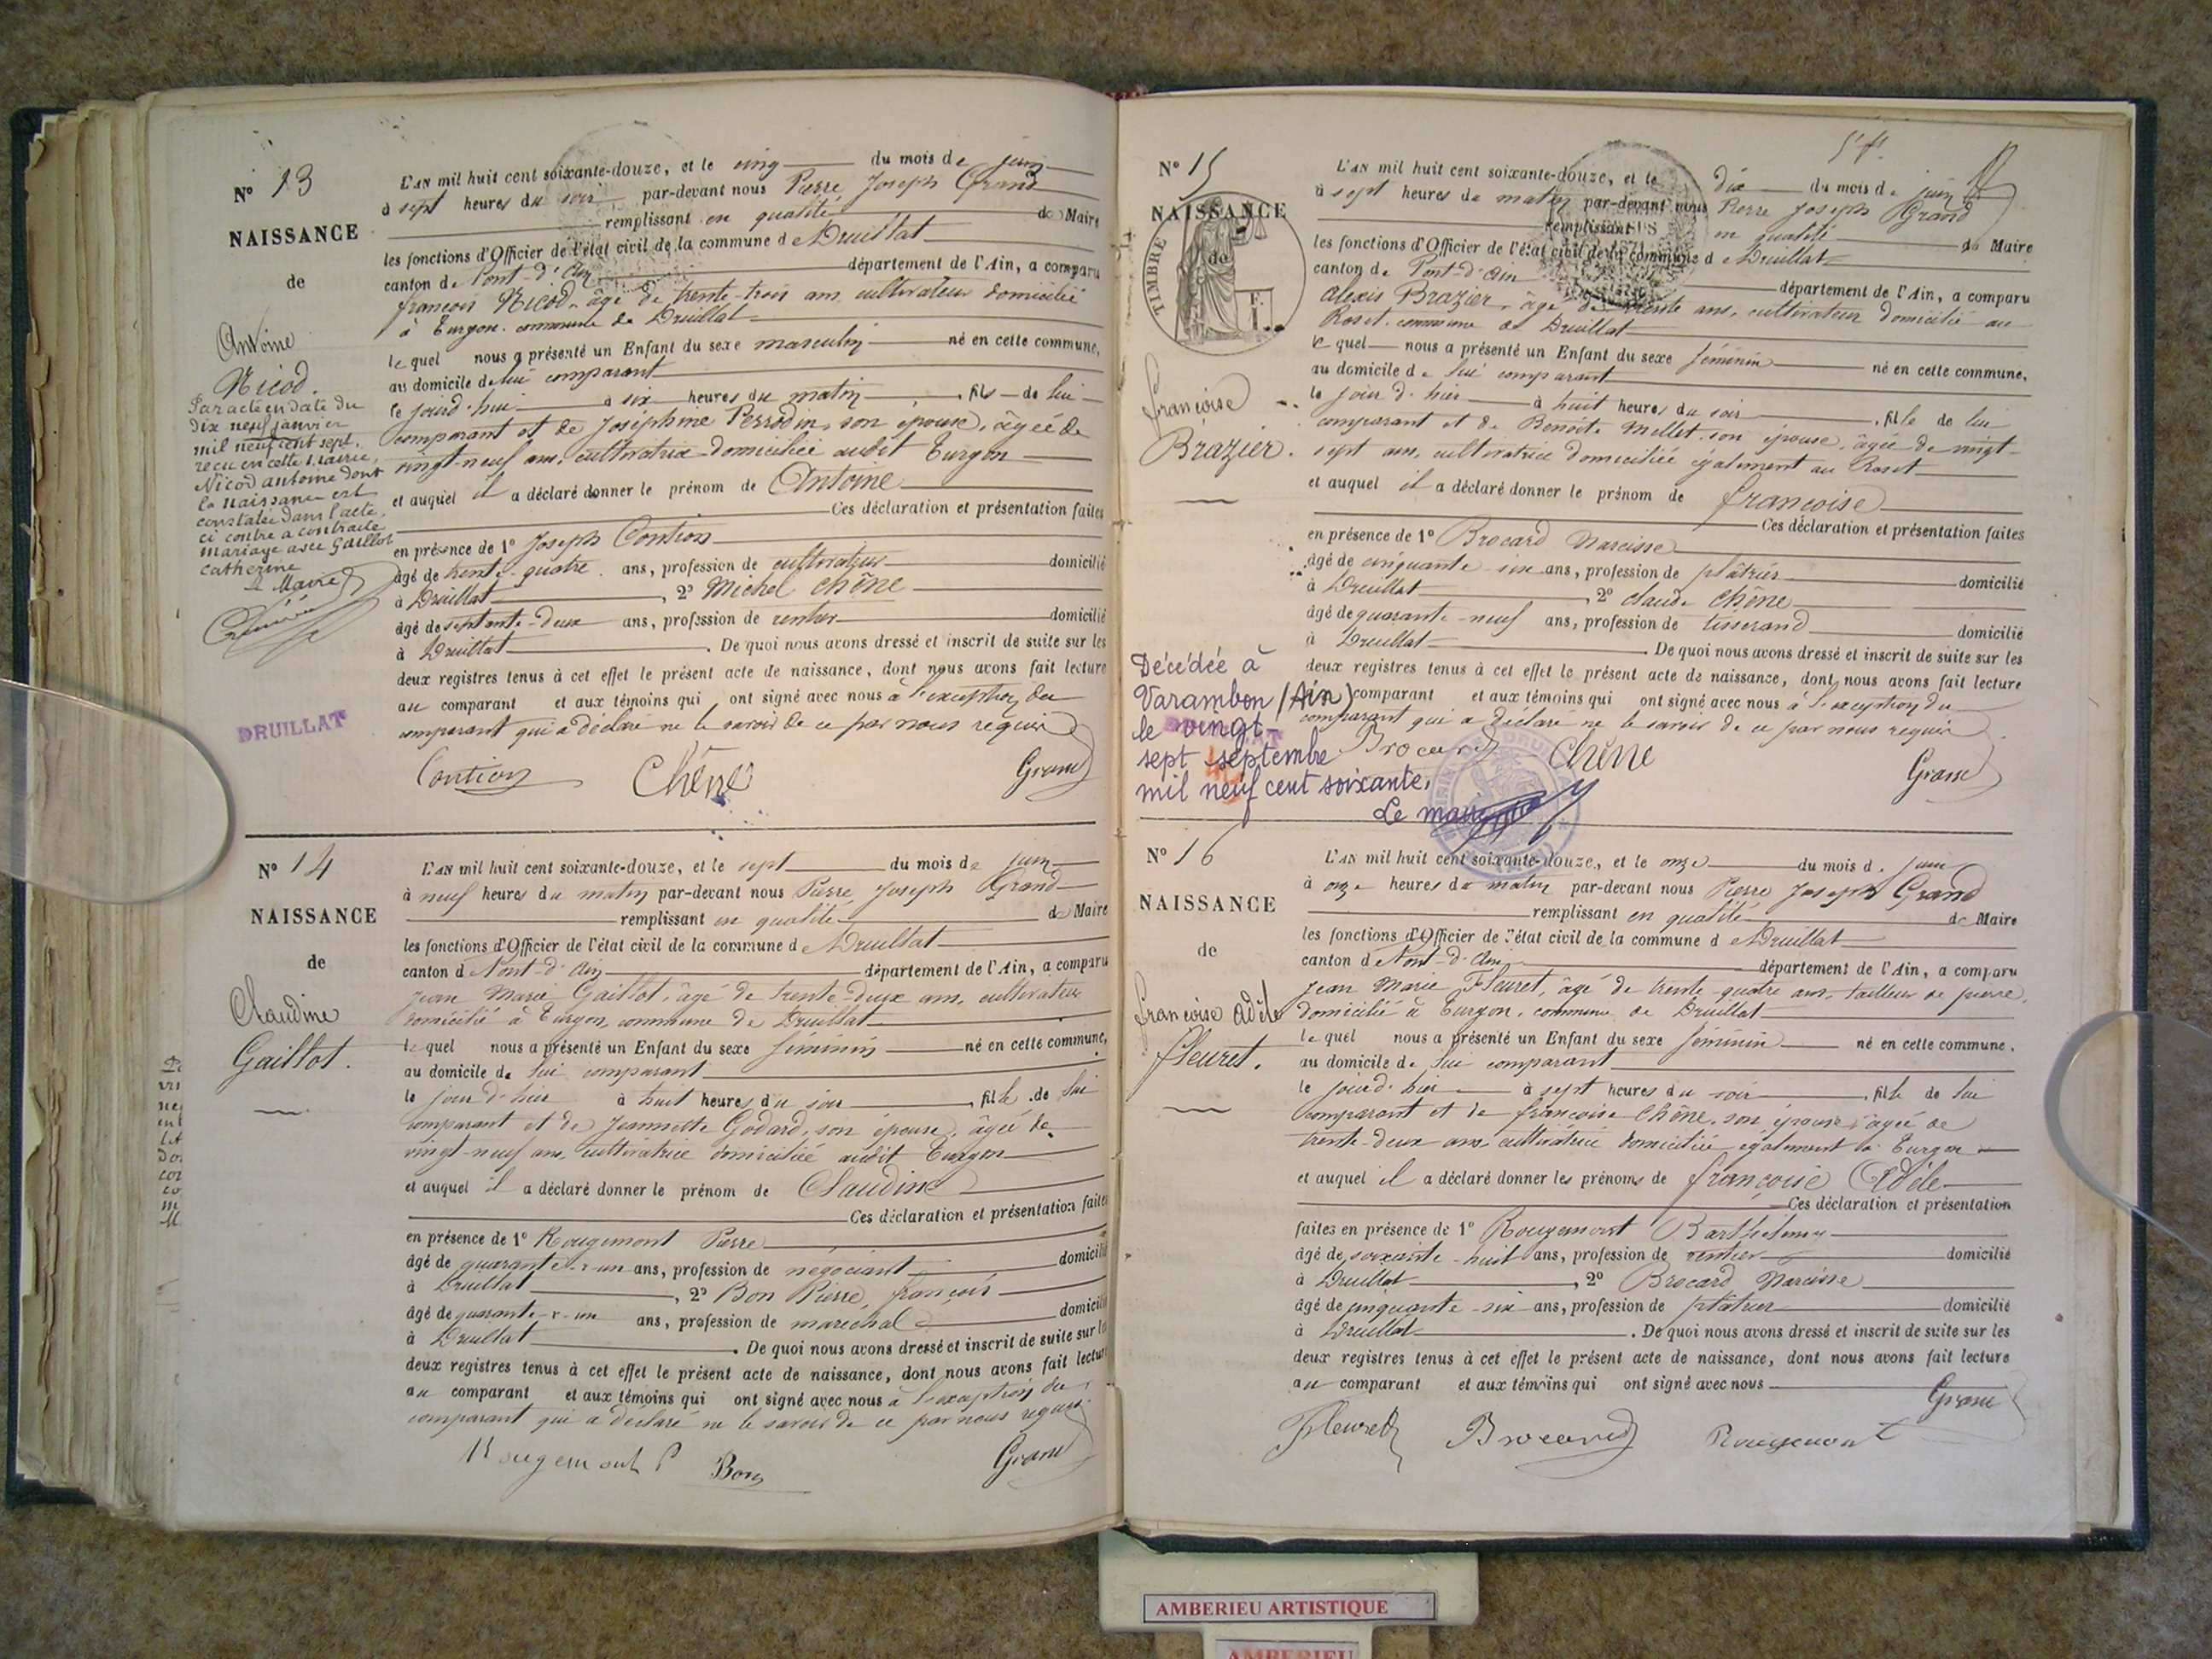 N° 13
NAISSANCE
de
Antoine
Nicod.
Par acte en date du
dix neuf janvier
mil neuf cent sept,
reçu en cette mairie,
Nicod antoine dont
la naissance est
constatée dans l'acte
ci contre a contracté
mariage avec Gaillot
Catherine
Le Maire
DRUILLAT
L'AN mil huit cent soixante-douze, et le cinq du mois de juin
à sept heures du soir par-devant nous Pierre Joseph Grand
remplissant en qualité de Maire
les fonctions d'Officier de l'état civil de la commune de Druillat
canton de Pont-d'Ain département de l'Ain, a comparu
françois Nicod, âgé de trente-trois ans, cultivateur domicilié
à Turgon, commune de Druillat
le quel nous a présenté un Enfant du sexe masculin né en cette commune,
au domicile de lui comparant
le jourd'hui à six heures du matin, fils de lui
comparant et de Joséphine Perrodin, son épouse, âgée de
vingt-neuf ans, cultivatrice domiciliée audit Turgon
et auquel il a déclaré donner le prénom de Antoine
Ces déclaration et présentation faites
en présence de 1° Joseph Contion
âgé de trente-quatre ans, profession de cultivateur domicilié
à Druillat, 2° Michel Chêne
âgé de septante-deux ans, profession de rentier domicilié
à Druillat. De quoi nous avons dressé et inscrit de suite sur les
deux registres tenus à cet effet le présent acte de naissance, dont nous avons fait lecture
au comparant et aux témoins qui ont signé avec nous à l'exception du
comparant qui a déclaré ne le savoir de ce par nous requis
Contion Chêne Grand
N° 14
NAISSANCE
de
Claudine
Gaillot.
L'AN mil huit cent soixante-douze, et le sept du mois de juin
à neuf heures du matin par-devant nous Pierre Joseph Grand
remplissant en qualité de Maire
les fonctions d'Officier de l'état civil de la commune de Druillat
canton de Pont-d'Ain département de l'Ain, a comparu
Jean Marie Gaillot, âgé de trente-deux ans, cultivateur
domicilié à Turgon, commune de Druillat
le quel nous a présenté un Enfant du sexe féminin né en cette commune,
au domicile de lui comparant
le jour d'hier à huit heures du soir, fille de lui
comparant et de Jeannette Godard, son épouse, âgée de
vingt-neuf ans, cultivatrice domiciliée audit Turgon
et auquel il a déclaré donner le prénom de Claudine
Ces déclaration et présentation faites
en présence de 1° Rougemont Pierre
âgé de quarante-un ans, profession de négociant domicilié
à Druillat, 2° Bon Pierre, françois
âgé de quarante-un ans, profession de maréchal domicilié
à Druillat. De quoi nous avons dressé et inscrit de suite sur les
deux registres tenus à cet effet le présent acte de naissance, dont nous avons fait lecture
au comparant et aux témoins qui ont signé avec nous à l'exception du
comparant qui a déclaré ne le savoir de ce par nous requis
Rougemont P Bon Grand
N° 15
NAISSANCE
de
TIMBRE
françoise
Brazier.
Décédée à
Varambon (Ain)
le vingt-
sept septembre
mil neuf cent soixante.
Le maire
L'AN mil huit cent soixante-douze, et le dix du mois de juin
à sept heures de matin par-devant nous Pierre Joseph Grand
remplissant en qualité de Maire
les fonctions d'Officier de l'état civil de la commune de Druillat
canton de Pont-d'Ain département de l'Ain, a comparu
Alexis Brazier, âgé de trente ans, cultivateur domicilié au
Roset, commune de Druillat
le quel nous a présenté un Enfant du sexe féminin né en cette commune,
au domicile de lui comparant
le jour d'hier à huit heures du soir, fille de lui
comparant et de Benoîte Millet, son épouse, âgée de vingt-
sept ans, cultivatrice domiciliée également au Roset
et auquel il a déclaré donner le prénom de françoise
Ces déclaration et présentation faites
en présence de 1° Brocard Narcisse
âgé de cinquante-six ans, profession de plâtrier domicilié
à Druillat, 2° Claude Chêne
âgé de quarante-neuf ans, profession de tisserand domicilié
à Druillat. De quoi nous avons dressé et inscrit de suite sur les
deux registres tenus à cet effet le présent acte de naissance, dont nous avons fait lecture
comparant et aux témoins qui ont signé avec nous à l'exception du
comparant qui a déclaré ne le savoir de ce par nous requis
Brocard Chêne Grand
N° 16
NAISSANCE
de
françoise Adèle
fleuret.
L'AN mil huit cent soixante-douze, et le onze du mois de juin
à onze heures du matin par-devant nous Pierre Joseph Grand
remplissant en qualité de Maire
les fonctions d'Officier de l'état civil de la commune de Druillat
canton de Pont-d'Ain département de l'Ain, a comparu
Jean Marie Fleuret, âgé de trente-quatre ans, tailleur de pierre,
domicilié à Turgon, commune de Druillat
le quel nous a présenté un Enfant du sexe féminin né en cette commune,
au domicile de lui comparant
le jour d'hier à sept heures du soir, fille de lui
comparant et de françoise Chêne, son épouse, âgée de
trente-deux ans, cultivatrice domiciliée également à Turgon
et auquel il a déclaré donner les prénoms de françoise Adèle
Ces déclaration et présentation
faites en présence de 1° Rougemont Barthelemy
âgé de soixante-huit ans, profession de rentier domicilié
à Druillat, 2° Brocard Narcisse
âgé de cinquante-six ans, profession de plâtrier domicilié
à Druillat. De quoi nous avons dressé et inscrit de suite sur les
deux registres tenus à cet effet le présent acte de naissance, dont nous avons fait lecture
au comparant et aux témoins qui ont signé avec nous
Grand
Fleuret Brocard Rougemont
AMBERIEU ARTISTIQUE
AMBERIEU